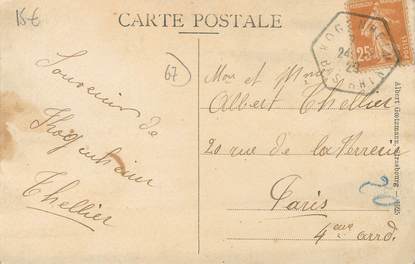 15€
CARTE POSTALE
67
Souvenir de
Kogenheim
Thellier
Mor et Mme
Albert Thellier
20 rue de la Verrerie
Paris
4eme arrd.
KOGENHEIM
24
25
25c
Albert Goetzmann, Strasbourg — 1925
20